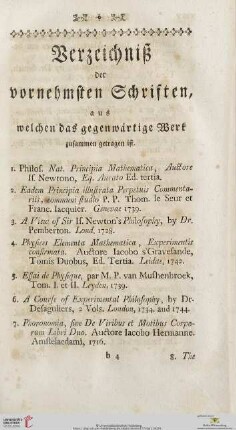 Verzeichniß
der
vornehmsten Schriften,
aus
welchen das gegenwärtige Werk
zusammen getragen ist.
1. Philos. Nat. Principia Mathematica, Auctore
Is. Newtono, Eq. Aurato Ed. tertia.
2. Eadem Principia illustrata Perpetuis Commenta-
riis, communi studio P. P. Thom. le Seur et
Franc. Iacquier. Genevae 1739.
3. A View of Sir Is. Newton's Philosophy, by Dr.
Pemberton. Lond. 1728.
4. Physices Elementa Mathematica, Experimentis
confirmata. Auctore Iacobo s'Gravesande,
Tomis Duobus, Ed. Tertia. Leidae, 1742.
5. Essai de Physique, par M. P. van Mushenbroek,
Tom. I. et II. Leyden, 1739.
6. A Course of Experimental Philosophy, by Dr.
Desaguliers, 2 Vols. London, 1734. and 1744.
7. Phoronomia, sive De Viribus et Motibus Corpo-
rum Libri Duo. Auctore Iacobo Hermanno.
Amstelaedami, 1716.
b 4 8. The